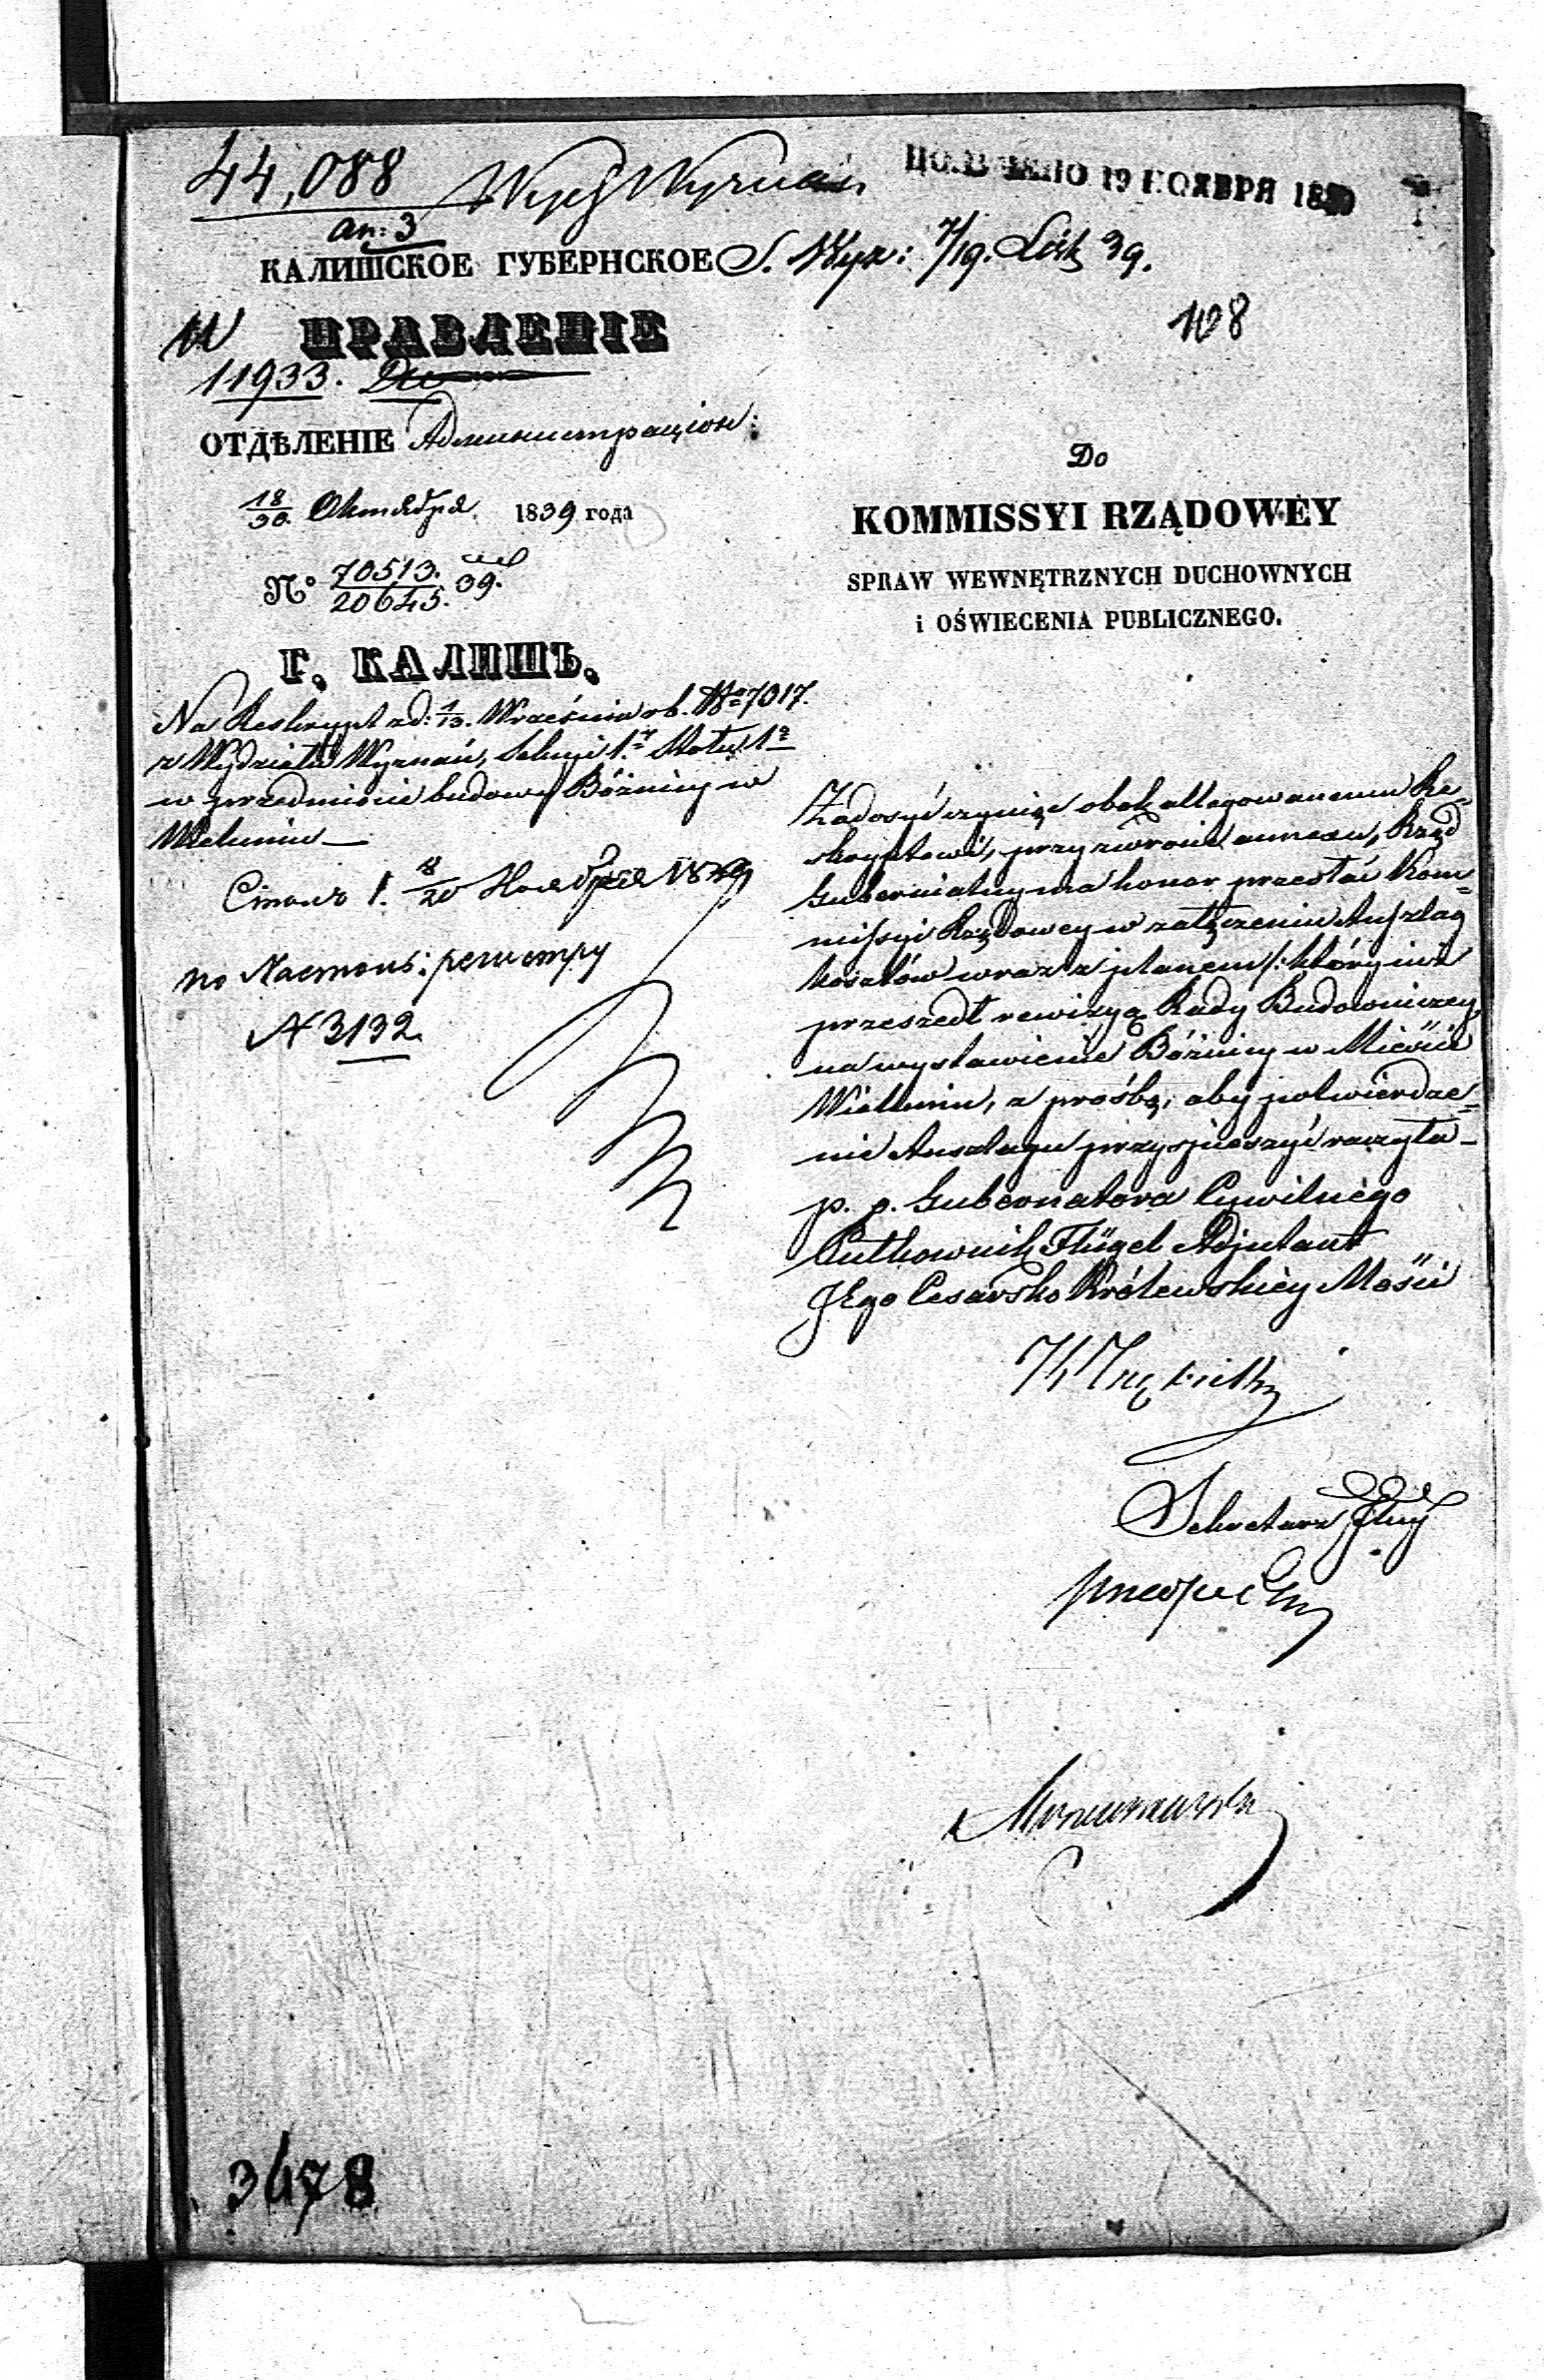 44,088
an: 3
Wydz Wyznań
ПОЛУЧЕНО 19 НОЯБРЯ 1839
S. Wyz: 7/19. List 39.
108
КАЛИШСКОЕ ГУБЕРНСКОЕ
ПРАВЛЕНІЕ
W
11933.
ОТДѢЛЕНІЕ Администраціон:
18/30. Октября 1839 года
№ 70513./20645. 39.
Г. КАЛИШЪ.
Na Reskrypt z d: 1/13. Września r b. No 7017.
z Wydziału Wyznań, Sekcyi 1. Stołu 1
w przedmiocie budowy Bóżnicy w
Wieluniu —
Столъ 1. 8/20 Ноября 1839
по Настол: регистру
N 3132.
Do
KOMMISSYI RZĄDOWEY
SPRAW WEWNĘTRZNYCH DUCHOWNYCH
i OŚWIECENIA PUBLICZNEGO.
Zadosyć czyniąc obok allegowanemu Re=
skryptowi, przy zwrocie annexu, Rząd
Gubernialny ma honor przesłać Kom=
missyi Rządowey w załączeniu Anszlag
kosztów wraz z planem /: który iuż
przeszedł rewizyą Rady Budowniczey
na wystawienie Bóżnicy w Mieście
Wieluniu, z prośbą, aby potwierdze=
nie Anszlagu przyspieszyć raczyła —
p. o. Gubernatora Cywilnego
Pułkownik Flügel Adjutant
JEgo Cesarsko Królewskiey Mości
Sekretarz Jlny
3478